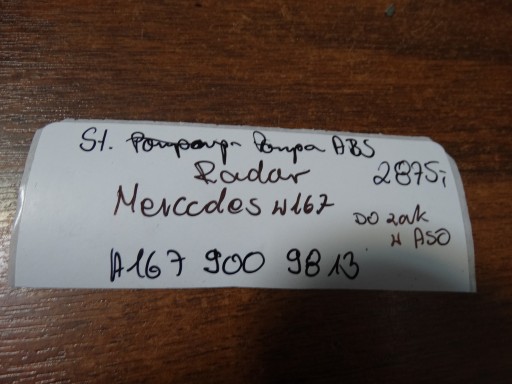 St. Pompa ABS
Radar 2875,-
Mercedes W167
DO zak
W ASO
A167 900 98 13